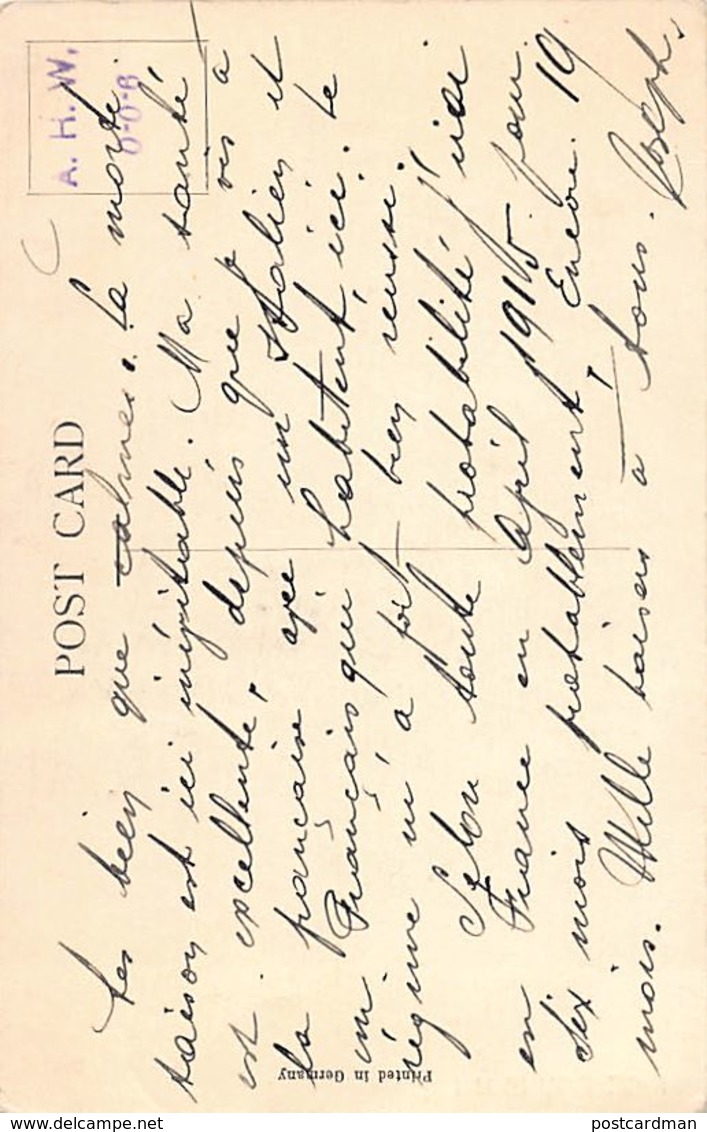 POST CARD
A. H. W.
0-0-6
très bien que calmes. La morte
saison est ici inévitable. Ma santé
est excellente, depuis que je vis à
la française avec un Italien et
un Français qui habitent ici. Le
régime m'a fort bien réussi.
Selon toute probabilité j'irai
en France en April 1915 pour
Six mois probablement, Encore 19
mois. Mille baisers à tous. Joseph.
Printed in Germany
postcardman